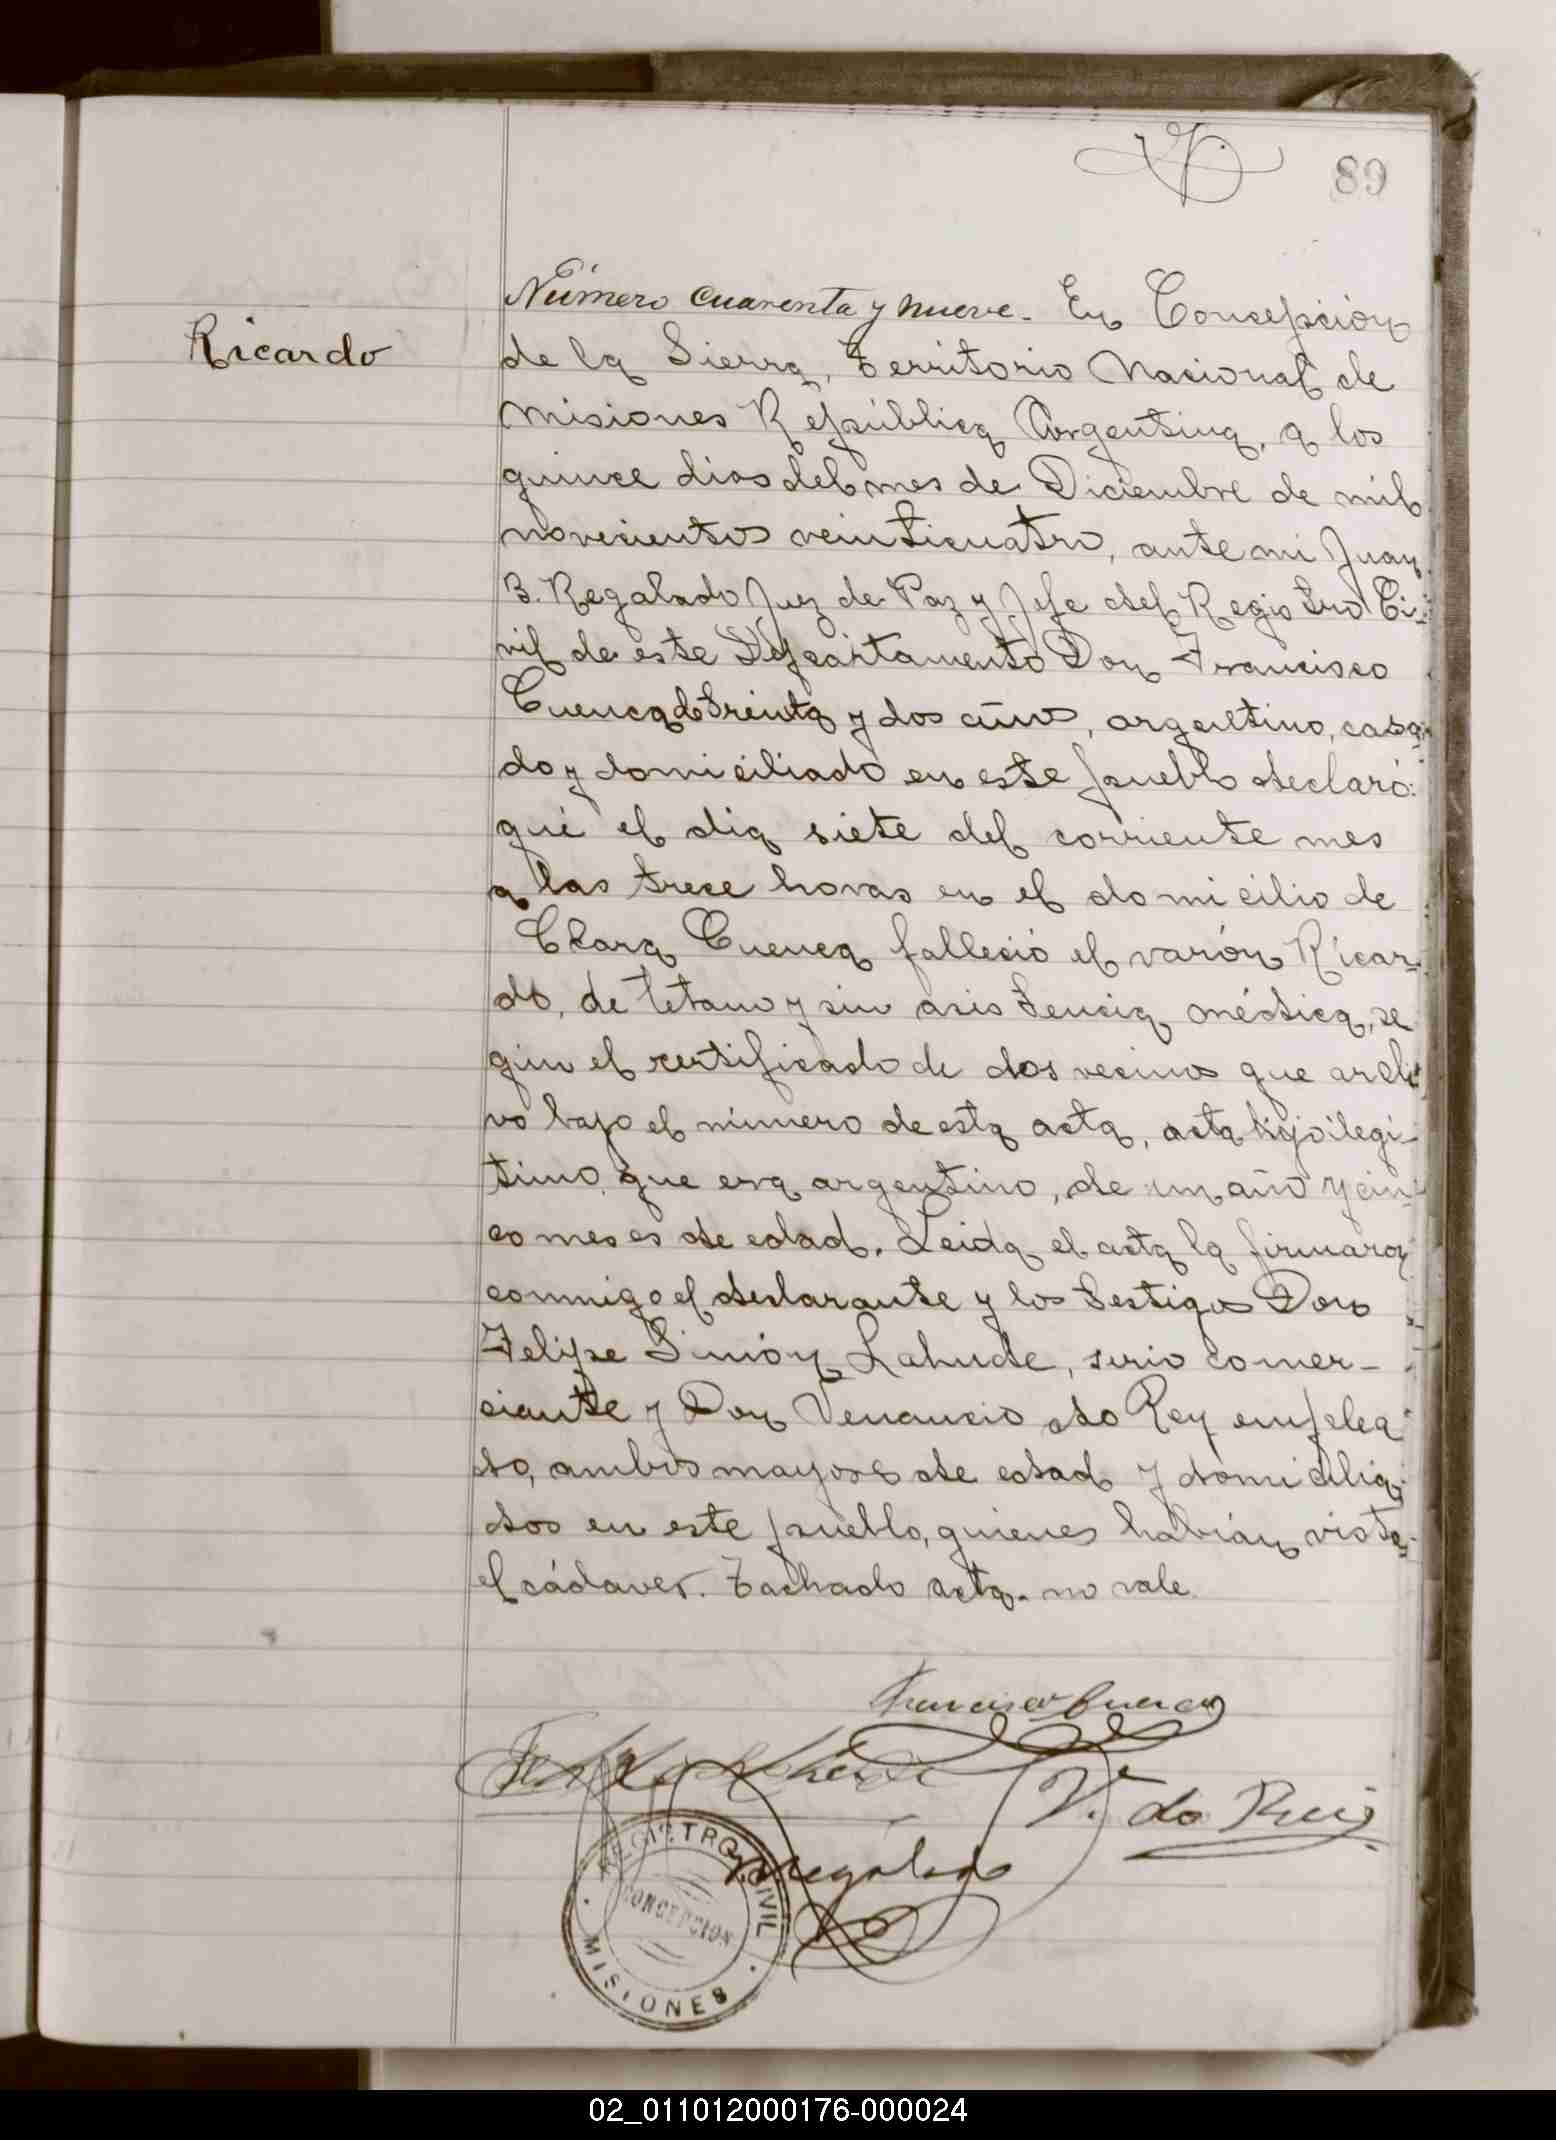 89
Ricardo
Número cuarenta y nueve. En Concepción
de la Sierra, Territorio Nacional de
Misiones República Argentina, a los
quince dias del mes de Diciembre de mil
novecientos veinticuatro, ante mi Juan
B. Regalado Juez de Paz y Jefe del Registro Ci-
vil de este Departamento Don Francisco
Cuenca de treinta y dos años, argentino, casa-
do y domiciliado en este pueblo declaró:
que el dia siete del corriente mes
a las trece horas en el domicilio de
Clara Cuenca falleció el varón Ricar-
do, de tetano y sin asistencia médica, se
gún el certificado de dos vecinos que archi
vo bajo el número de esta acta, acta hijo ilegi-
timo, que era argentino, de un año y cin-
co meses de edad. Leida el acta la firmaron
conmigo el declarante y los testigos Don
Felipe Simón Lahude, sirio comer-
ciante y Don Venancio do Rey emplea
do, ambos mayores de edad y domicilia-
dos en este pueblo, quienes habian visto
el cádaver. Tachado acta. no vale.
Francisco Cuenca
V. do Rey
Regalado
REGISTRO CIVIL
CONCEPCION
MISIONES
02_011012000176-000024